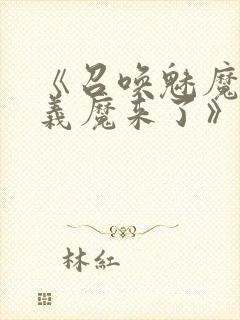 《召唤魅魔
義魔来了》
林紅